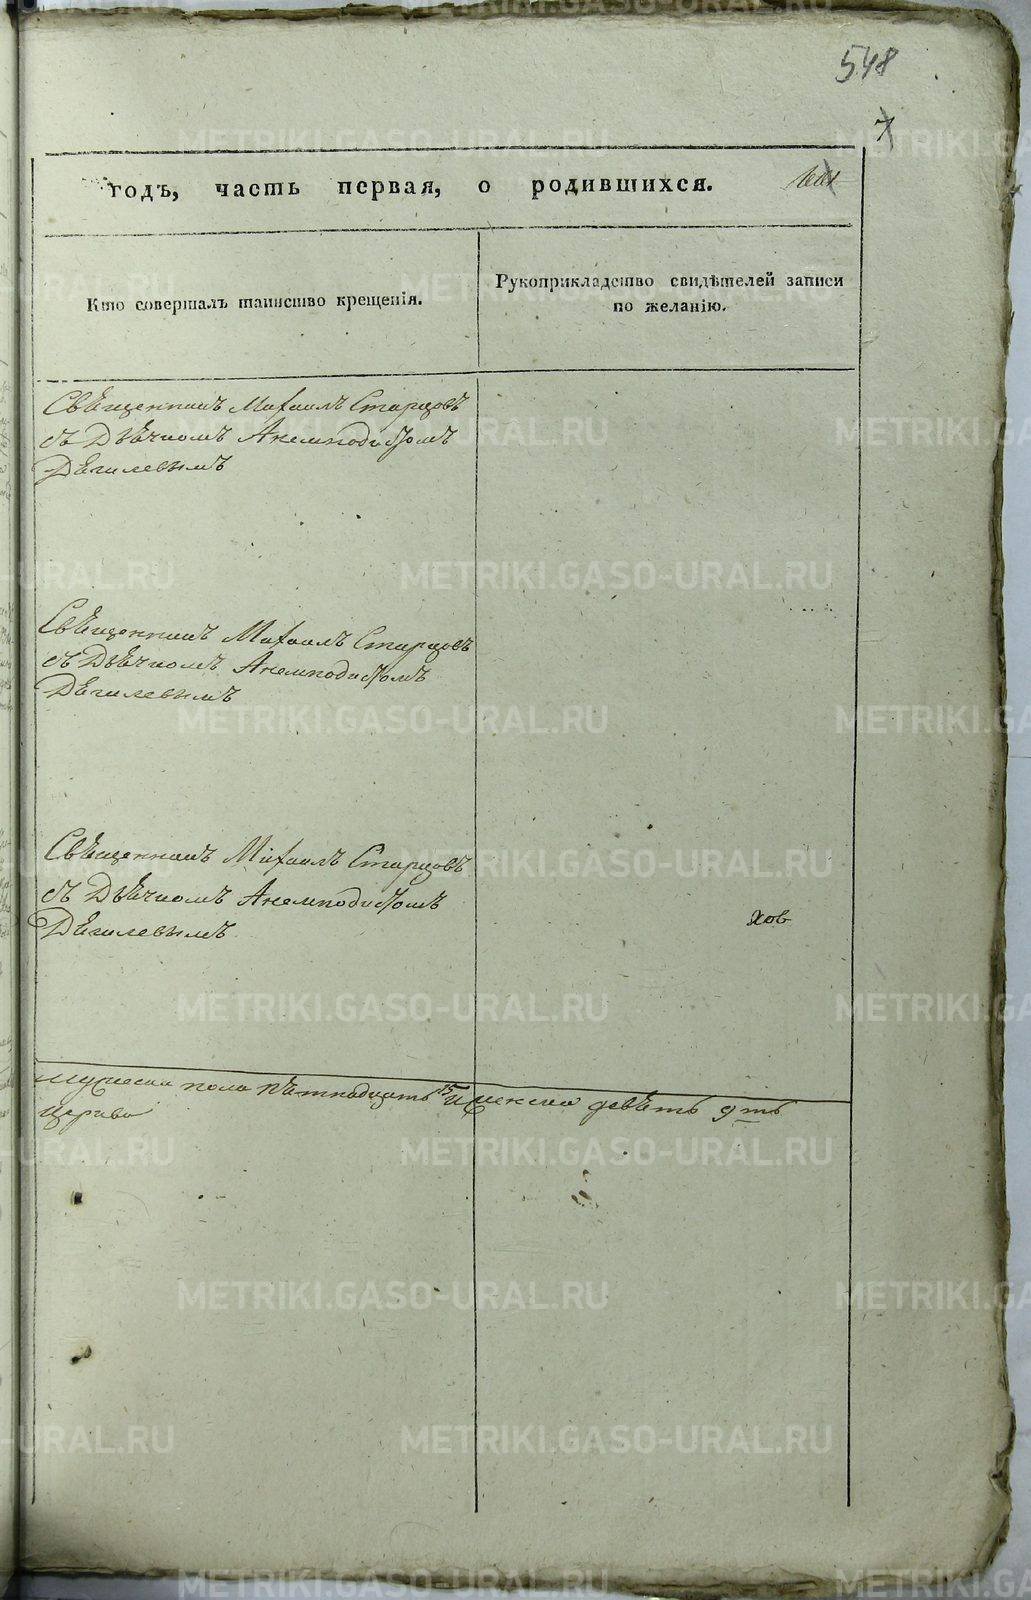 548
7
годъ, часть первая, о родившихся.
Кто совершалъ таинство крещенія.
Рукоприкладство свидѣтелей записи
по желанію.
Свѣщенникъ Михаилъ Старцовъ
съ Дьѣчкомъ Анемподистомъ
Дѣгилевымъ
Свѣщенникъ Михаилъ Старцовъ
съ Дьѣчкомъ Анемподистомъ
Дѣгилевымъ
Свѣщенникъ Михаилъ Старцовъ
съ Дьѣчкомъ Анемподистомъ
Дѣгилевымъ
хов
мужеска пола пѣтнадцать 15 и женска девѣть 9ть
METRIKI.GASO-URAL.RU